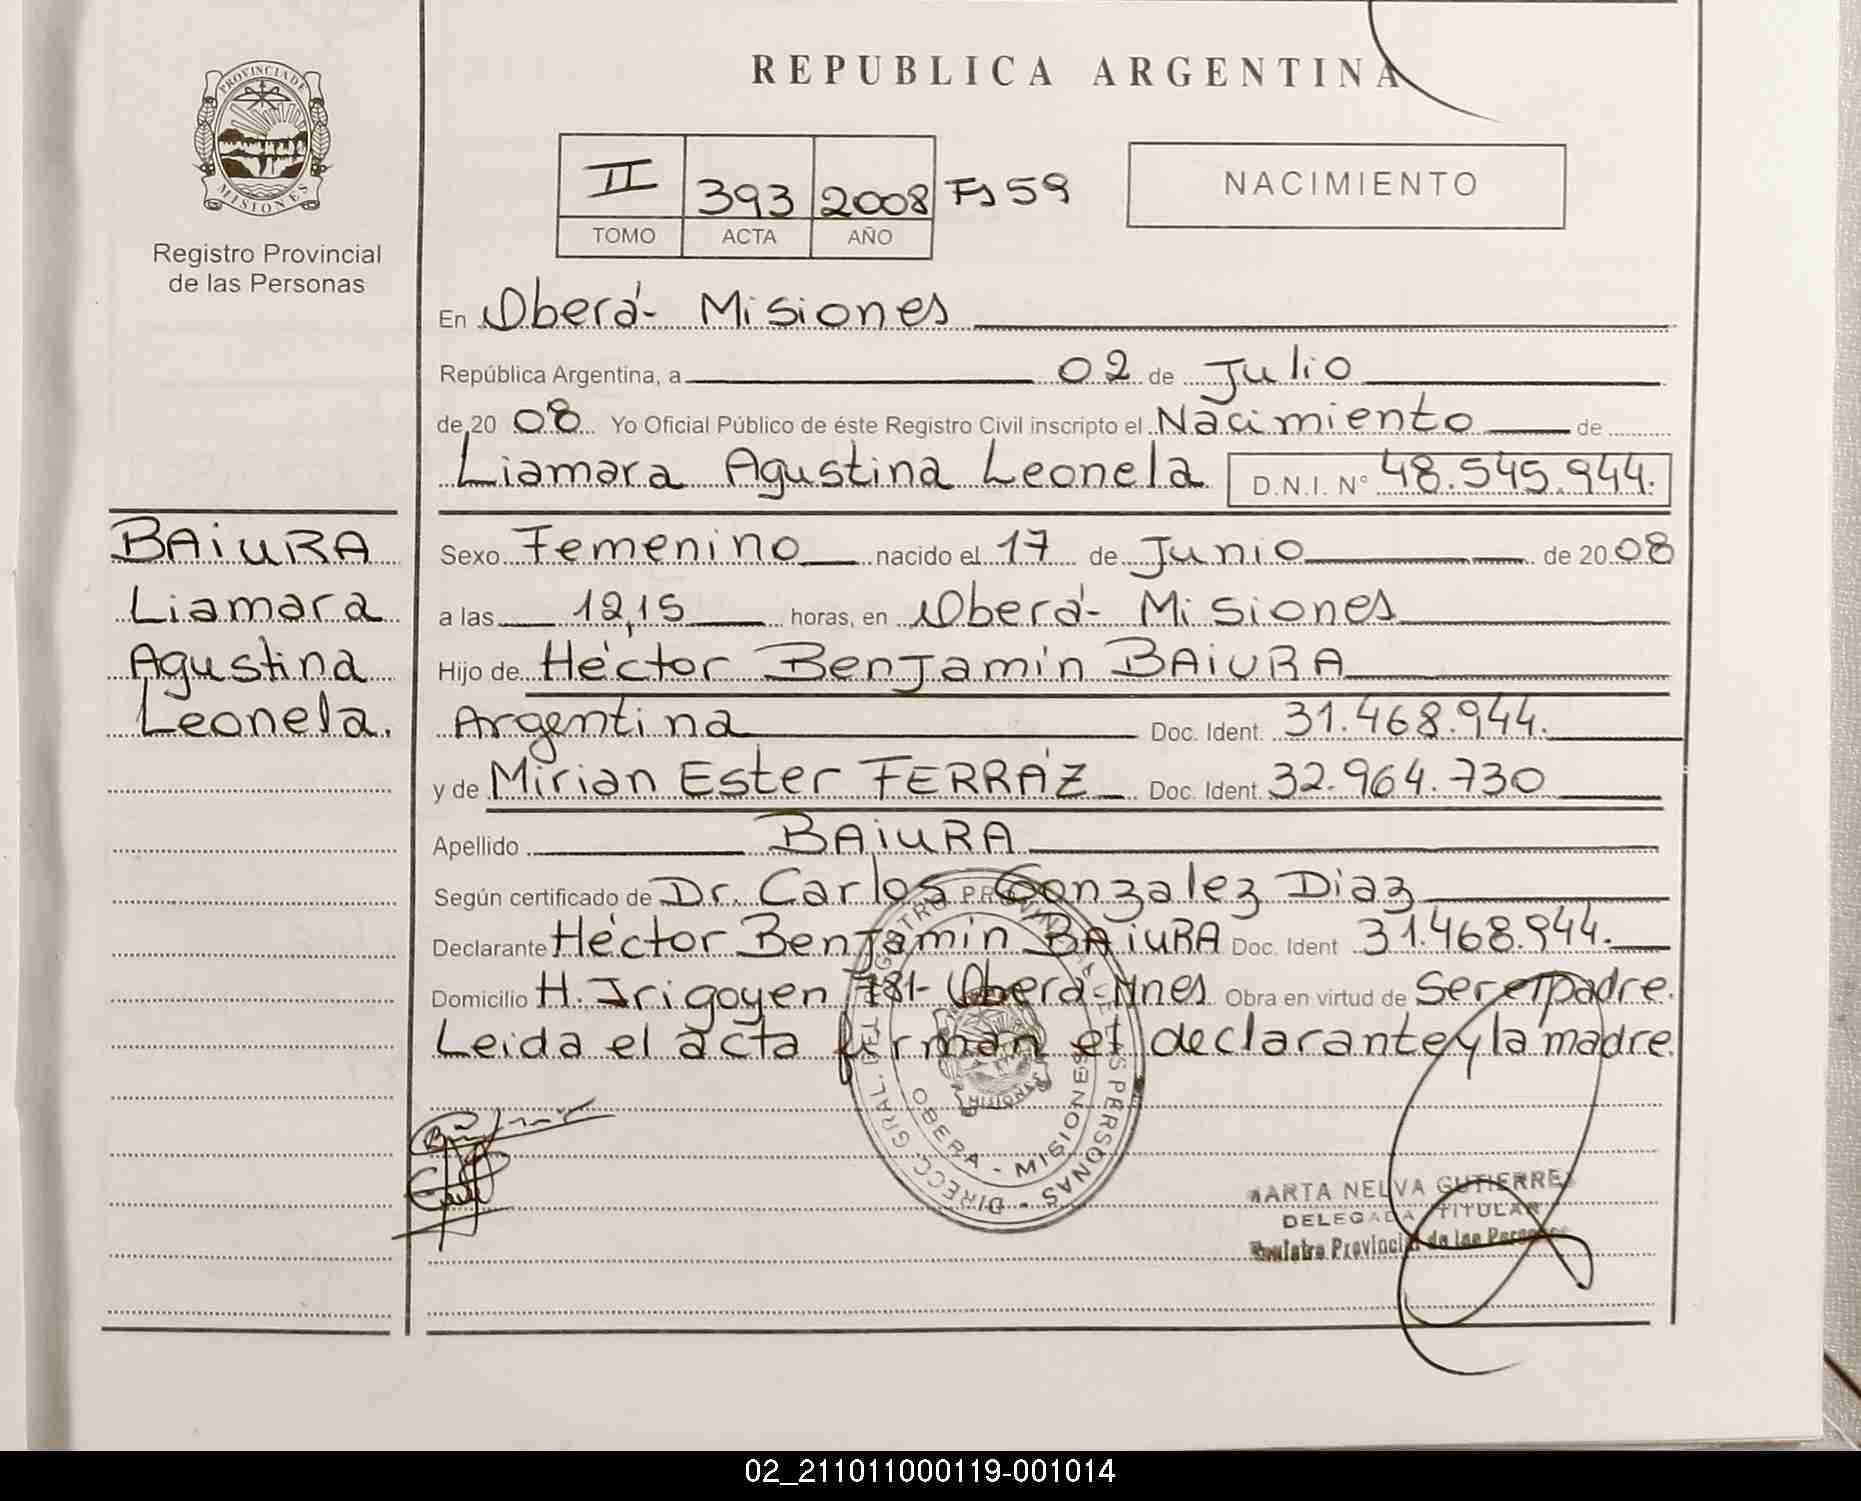 REPUBLICA ARGENTINA
PROVINCIA DE
MISIONES
Registro Provincial
de las Personas
II 393 2008 Fs 59
TOMO ACTA AÑO
NACIMIENTO
En Oberá- Misiones
República Argentina, a 02 de Julio
de 20 08 Yo Oficial Público de éste Registro Civil inscripto el Nacimiento de
Liamara Agustina Leonela D.N.I. N° 48.545.944.
BAiURA
Liamara
Agustina
Leonela.
Sexo Femenino nacido el 17 de Junio de 20 08
a las 12,15 horas, en Oberá- Misiones
Hijo de Héctor Benjamín BAiURA
Argentina Doc. Ident. 31.468.944.
y de Mirian Ester FERRÁZ Doc. Ident. 32.964.730
Apellido BAiURA
Según certificado de Dr. Carlos Gonzalez Diaz
Declarante Héctor Benjamín BAiURA Doc. Ident 31.468.944.
Domicilio H. Irigoyen 781- Oberá-Mnes Obra en virtud de Ser el padre.
Leida el acta firman el declarante y la madre
DIRECC. GRAL. DEL REGISTRO PROVINCIAL DE LAS PERSONAS
MISIONES
OBERA - MISIONES
MARTA NELVA GUTIERREZ
DELEGADA TITULAR
Registro Provincial de las Personas
02_211011000119-001014